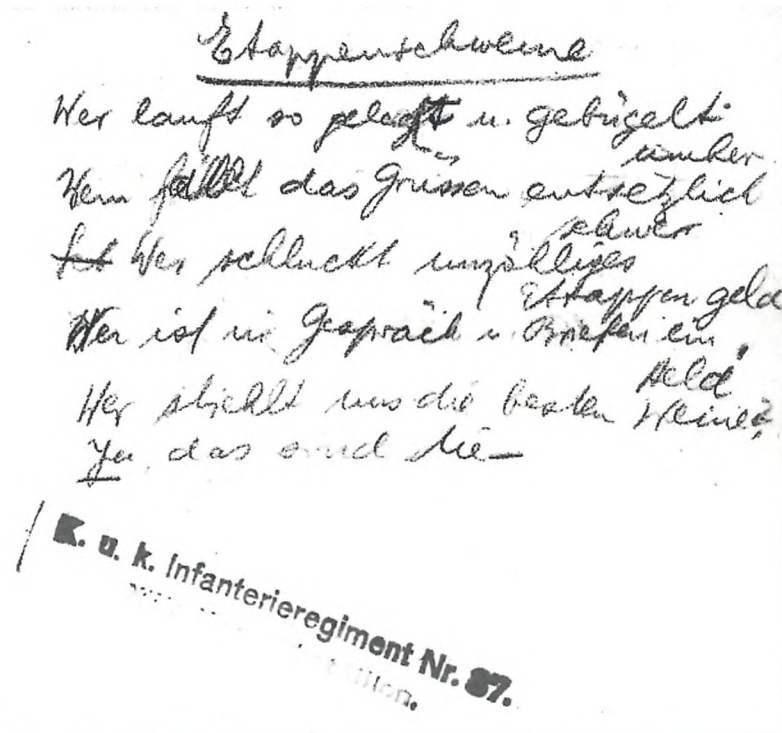 Etappenschweine
Wer lauft so gelegt u. gebügelt
umher
Wem fällt das Grüssen entsetzlich
schwer
Wer schluckt unzälliges
Etappengeld
Wer ist in Gespräch u. Briefen ein
Held
Wer stiehlt uns die besten Weine?
Ja, das sind die—
K. u. k. Infanterieregiment Nr. 37.